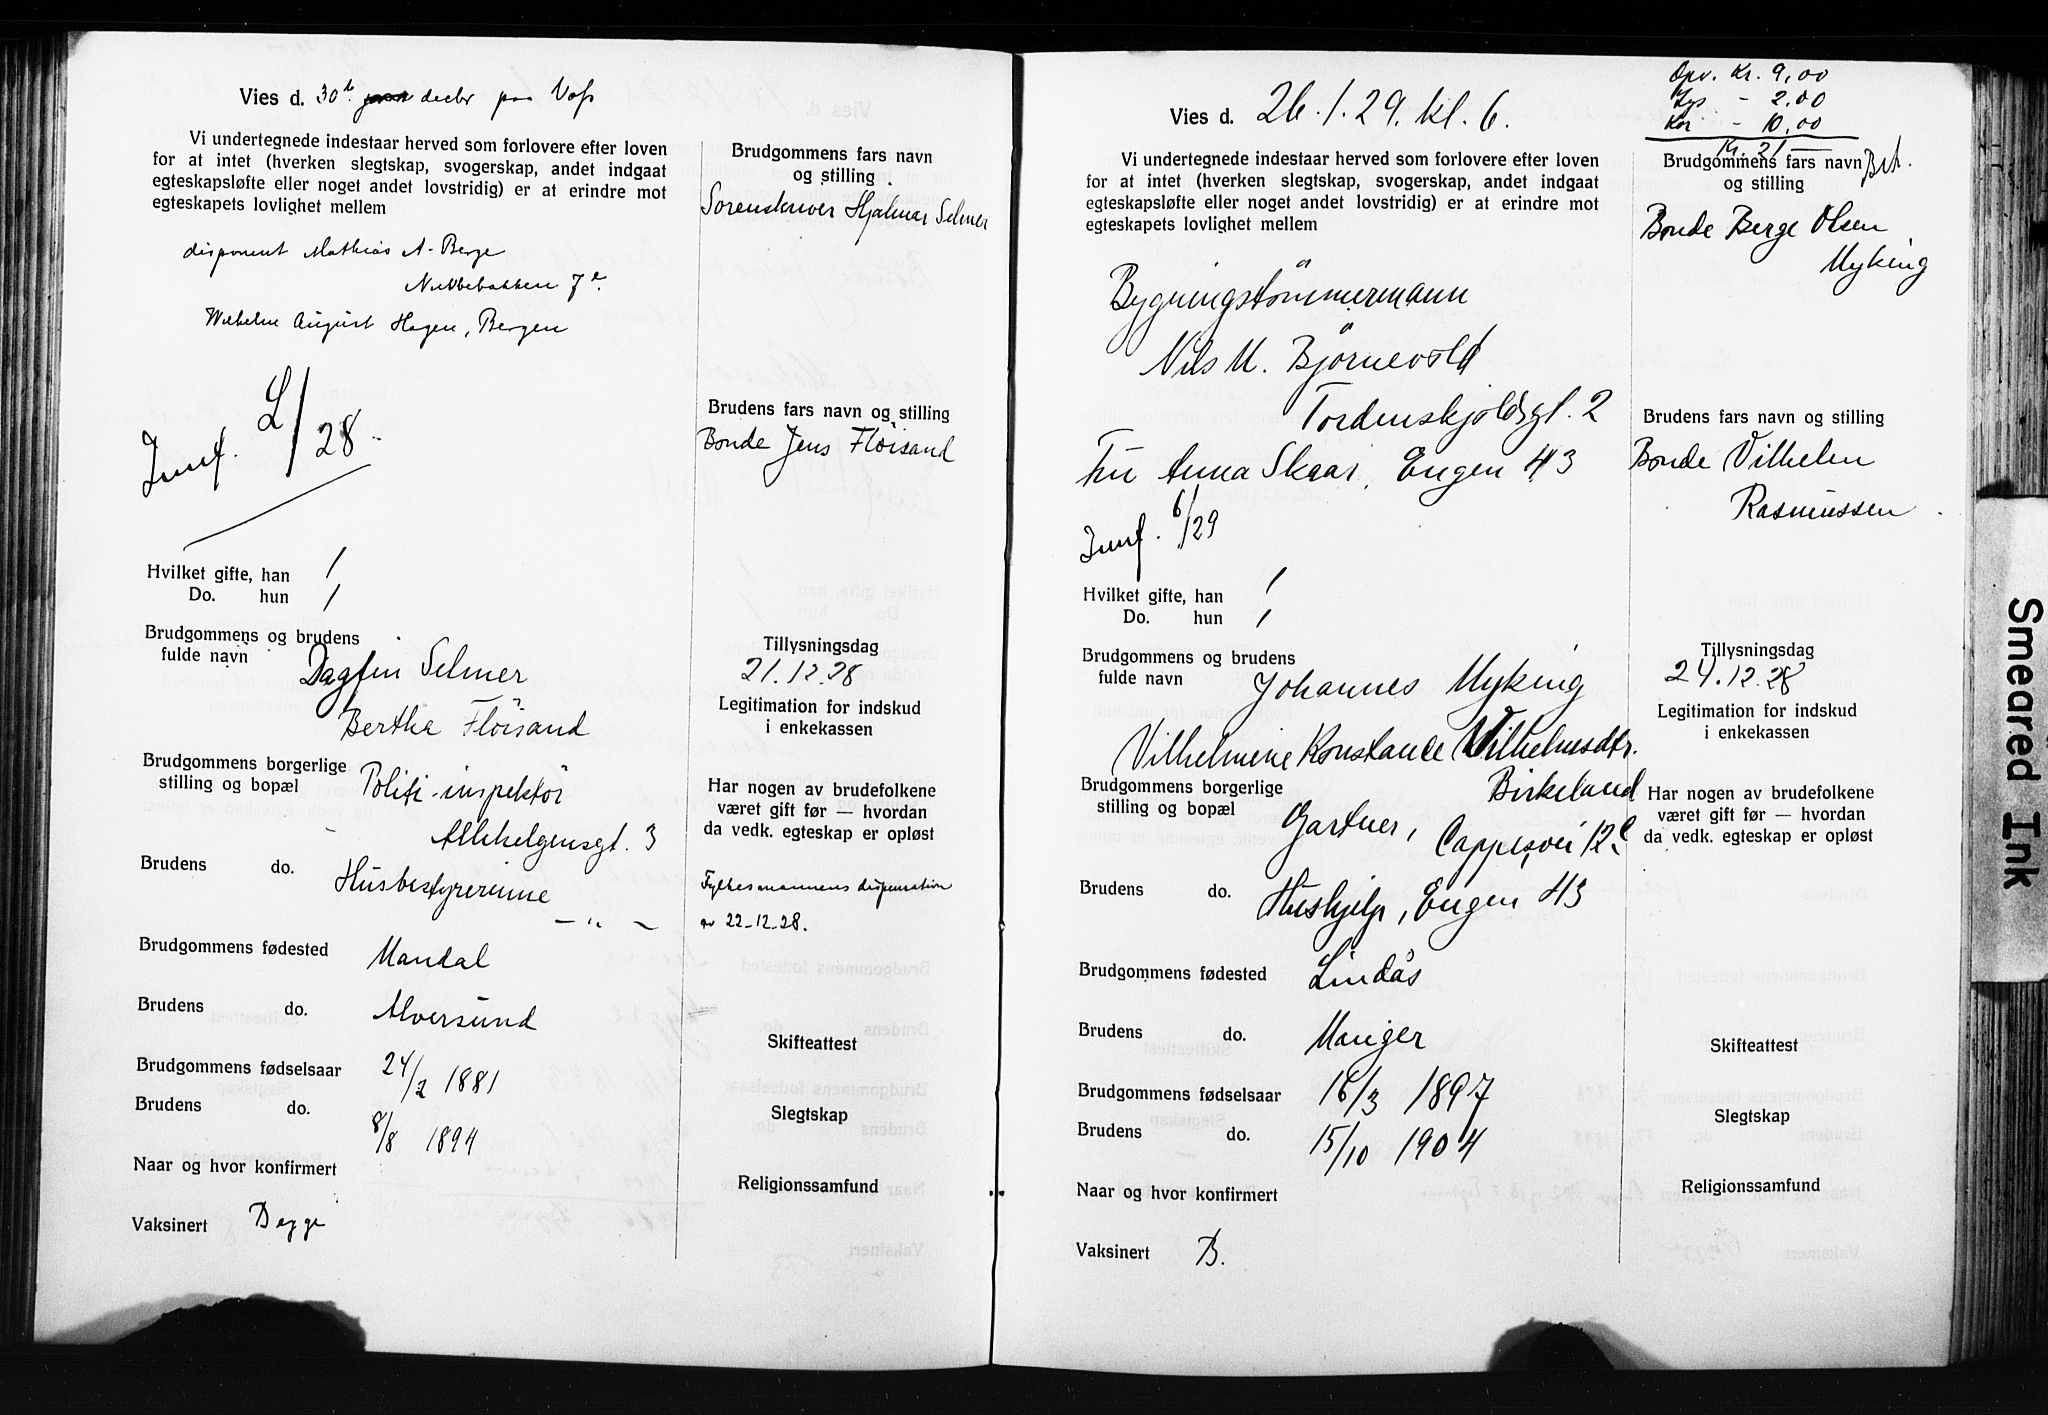 Vies d. 30te decbr paa Voss
Vi undertegnede indestaar herved som forlovere efter loven
for at intet (hverken slegtskap, svogerskap, andet indgaat
egteskapsløfte eller noget andet lovstridig) er at erindre mot
egteskapets lovlighet mellem
disponent Mathias A. Berge
Nubbebakken 7e.
Wilhelm August Hagen, Bergen
Innf. L/28.
Hvilket gifte, han 1
Do. hun 1
Brudgommens og brudens
fulde navn Dagfin Selmer
Bertha Flöisand
Brudgommens borgerlige
stilling og bopæl Politi-inspektör
Allehelgensgt. 3
Brudens do. Husbestyrerinne
— " —
Brudgommens fødested Mandal
Brudens do. Alversund
Brudgommens fødselsaar 24/2 1881
Brudens do. 8/8 1894
Naar og hvor konfirmert
Vaksinert Begge
Brudgommens fars navn
og stilling
Sorenskriver Hjalmar Selmer
Brudens fars navn og stilling
Bonde Jens Flöisand
Tillysningsdag
21.12.28
Legitimation for indskud
i enkekassen
Har nogen av brudefolkene
været gift før — hvordan
da vedk. egteskap er opløst
Fylkesmannens dispensation
av 22-12-28.
Skifteattest
Slegtskap
Religionssamfund
Vies d. 26.1.29. kl. 6.
Vi undertegnede indestaar herved som forlovere efter loven
for at intet (hverken slegtskap, svogerskap, andet indgaat
egteskapsløfte eller noget andet lovstridig) er at erindre mot
egteskapets lovlighet mellem
Bygningstömmermann
Nils M. Björnevold
Tordenskjoldsgt. 2
Fru Anna Skaar, Engen 43
Innf. 6/29
Hvilket gifte, han 1
Do. hun 1
Brudgommens og brudens
fulde navn Johannes Myking
Vilhelmine Konstance Vilhelmsdtr.
Birkeland
Brudgommens borgerlige
stilling og bopæl Gartner, Cappesvei 12c
Brudens do. Hushjelp, Engen 43
Brudgommens fødested Lindås
Brudens do. Manger
Brudgommens fødselsaar 16/3 1897
Brudens do. 15/10 1904
Naar og hvor konfirmert
Vaksinert B.
Opv. Kr. 9,00
Lys - 2.00
Kor - 10,00
Kr. 21 —
Brudgommens fars navn
og stilling
Bonde Berge Olsen
Myking
Brudens fars navn og stilling
Bonde Vilhelm
Rasmussen
Tillysningsdag
24.12.28
Legitimation for indskud
i enkekassen
Har nogen av brudefolkene
været gift før — hvordan
da vedk. egteskap er opløst
Skifteattest
Slegtskap
Religionssamfund
Smeared Ink